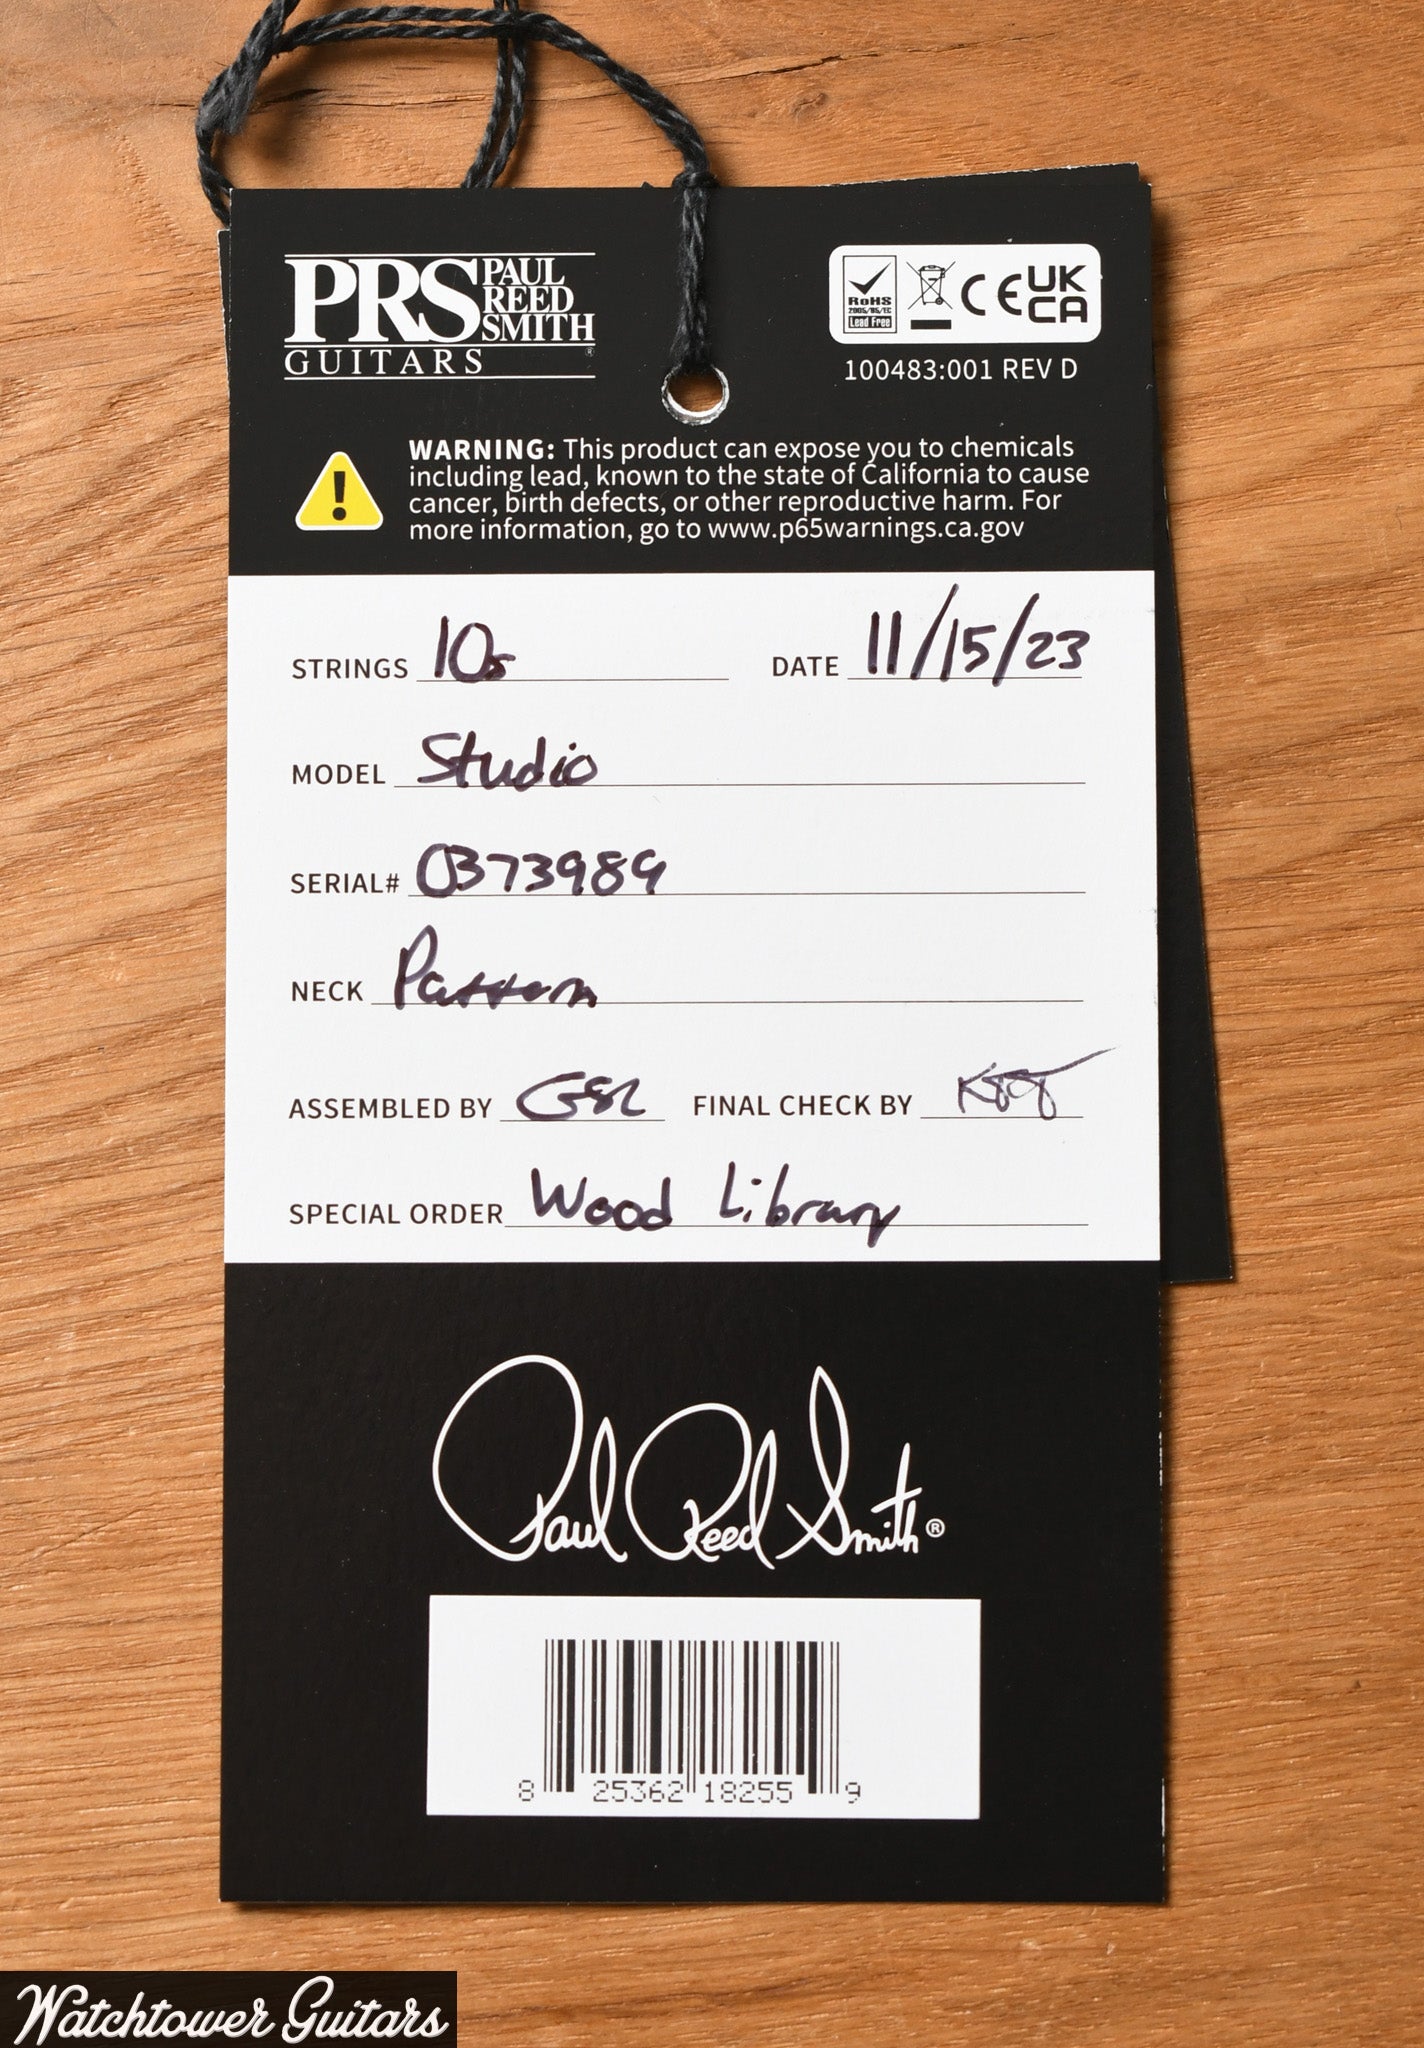 PRS PAUL REED SMITH
GUITARS ®
RoHS
2005/95/EC
Lead Free
CE UK CA
100483:001 REV D
WARNING: This product can expose you to chemicals
including lead, known to the state of California to cause
cancer, birth defects, or other reproductive harm. For
more information, go to www.p65warnings.ca.gov
STRINGS 10s DATE 11/15/23
MODEL Studio
SERIAL# 0373989
NECK Pattern
ASSEMBLED BY FINAL CHECK BY
SPECIAL ORDER Wood Library
Paul Reed Smith®
8 25362 18255 9
Watchtower Guitars